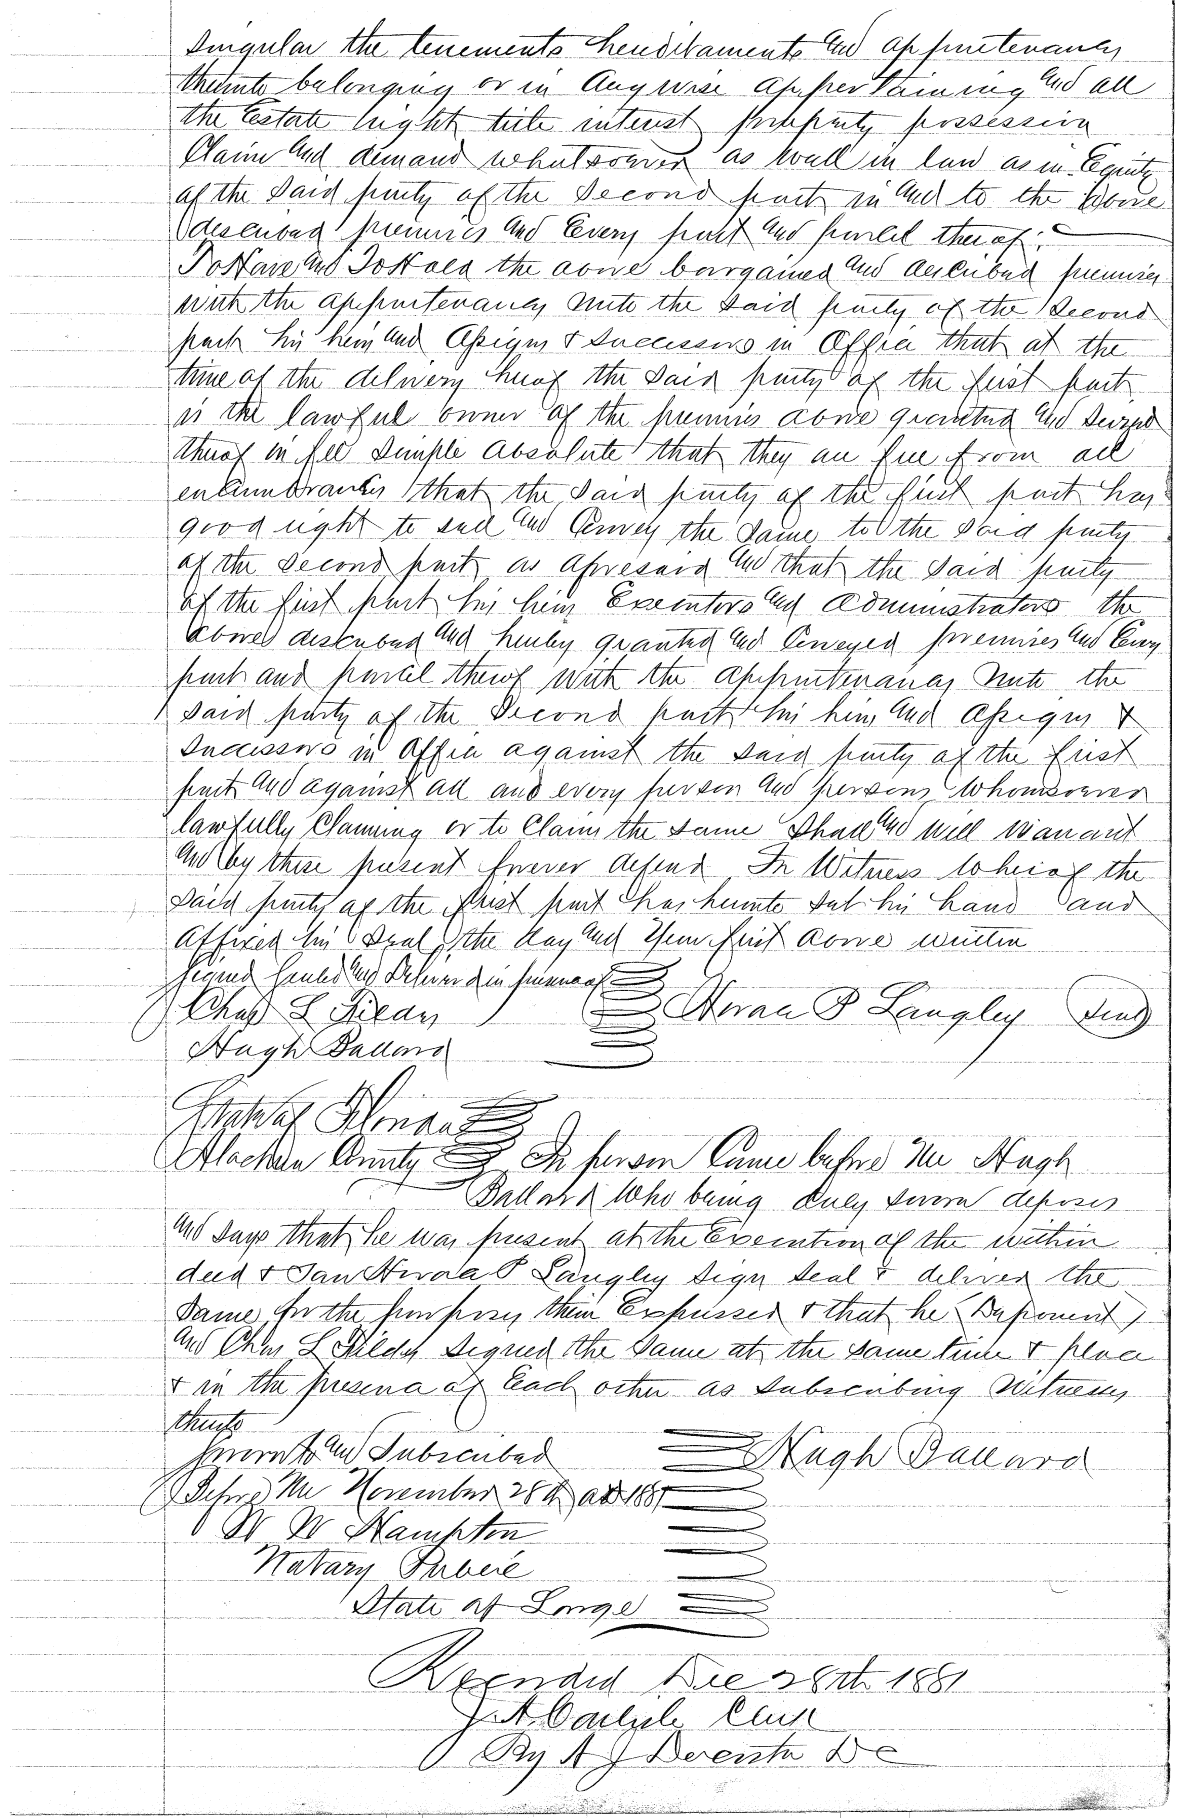 Singular the tenements hereditaments and appurtenances
thereunto belonging or in Any wise appertaining and all
the Estate right title interest property possession
Claim and demand whatsoever as well in law as in Equity
of the Said party of the Second part in and to the above
described premises and Every part and parcel thereof.
To Have and To Hold the above bargained and described premises
with the appurtenances unto the Said party of the Second
part his heirs and Assigns & Successors in Office that at the
time of the delivery hereof the Said party of the first part
is the lawful owner of the premises above granted and Seized
thereof in fee Simple Absolute that they are free from all
encumbrances that the Said party of the first part has
good right to sell and Convey the Same to the Said party
of the Second part as aforesaid and that the Said party
of the first part his heirs Executors and administrators the
above described and hereby granted and Conveyed premises and Every
part and parcel thereof with the appurtenances unto the
Said party of the Second part his heirs and Assigns &
Successors in Office against the Said party of the first
part and against all and every person and persons whomsoever
lawfully Claiming or to Claim the same Shall and will Warrant
and by these present forever defend In Witness whereof the
Said party of the first part has hereunto Set his hand and
Affixed his Seal the day and Year first above written
Signed Sealed and Delivered in presence of
Chas L Fildes Hiraa P Langley Seal
Hugh Ballard
State of Florida
Alachua County In person Came before Me Hugh
Ballard Who being duly sworn deposes
and Says that he was present at the Execution of the within
deed & Saw Hiraa P Langley Sign Seal & deliver the
Same for the purposes therein Expressed & that he (Deponent)
and Chas L Fildes Signed the Same at the same time & place
& in the presence of Each other as Subscribing Witnesses
thereto
Sworn to and Subscribed Hugh Ballard
Before Me November 28th AD 1881
W W Hampton
Notary Public
State at Large
Recorded Dec 28th 1881
J. A. Carlisle Clerk
By A J DC